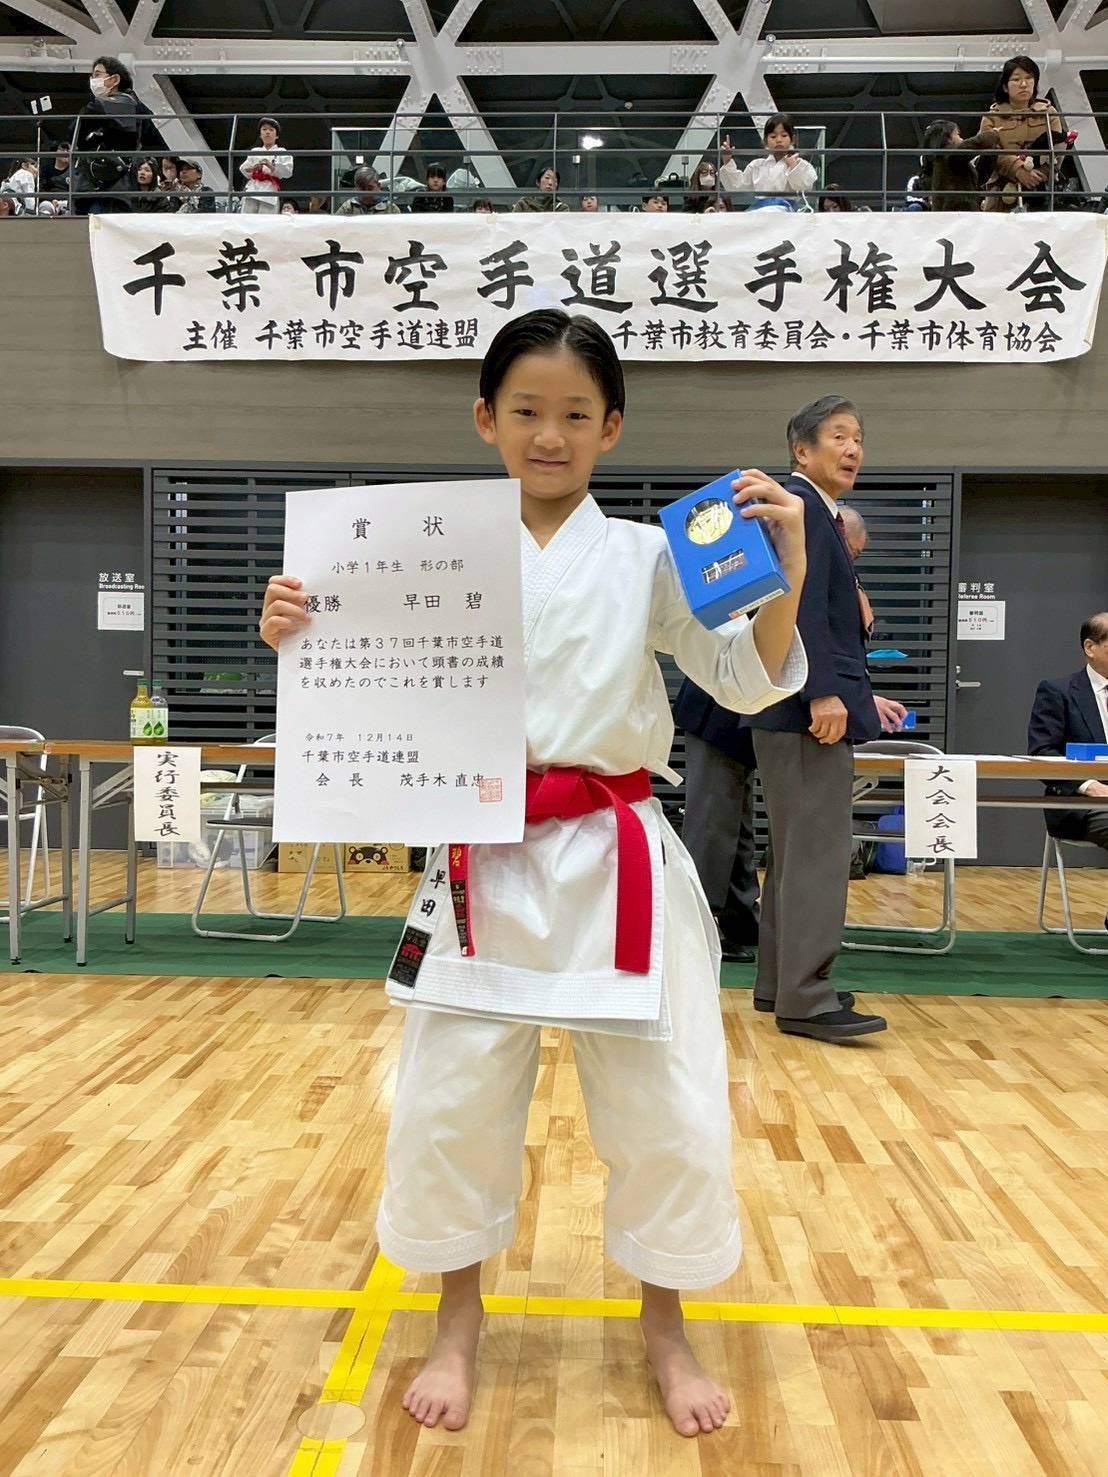 千葉市空手道選手権大会
主催 千葉市空手道連盟 千葉市教育委員会・千葉市体育協会
放送室
Broadcasting Roo
審判室
Referee Room
賞 状
小学1年生 形の部
優勝 早田 碧
あなたは第37回千葉市空手道
選手権大会において頭書の成績
を収めたのでこれを賞します
令和7年 12月14日
千葉市空手道連盟
会 長 茂手木 直忠
実行委員長
大会会長
早田
碧